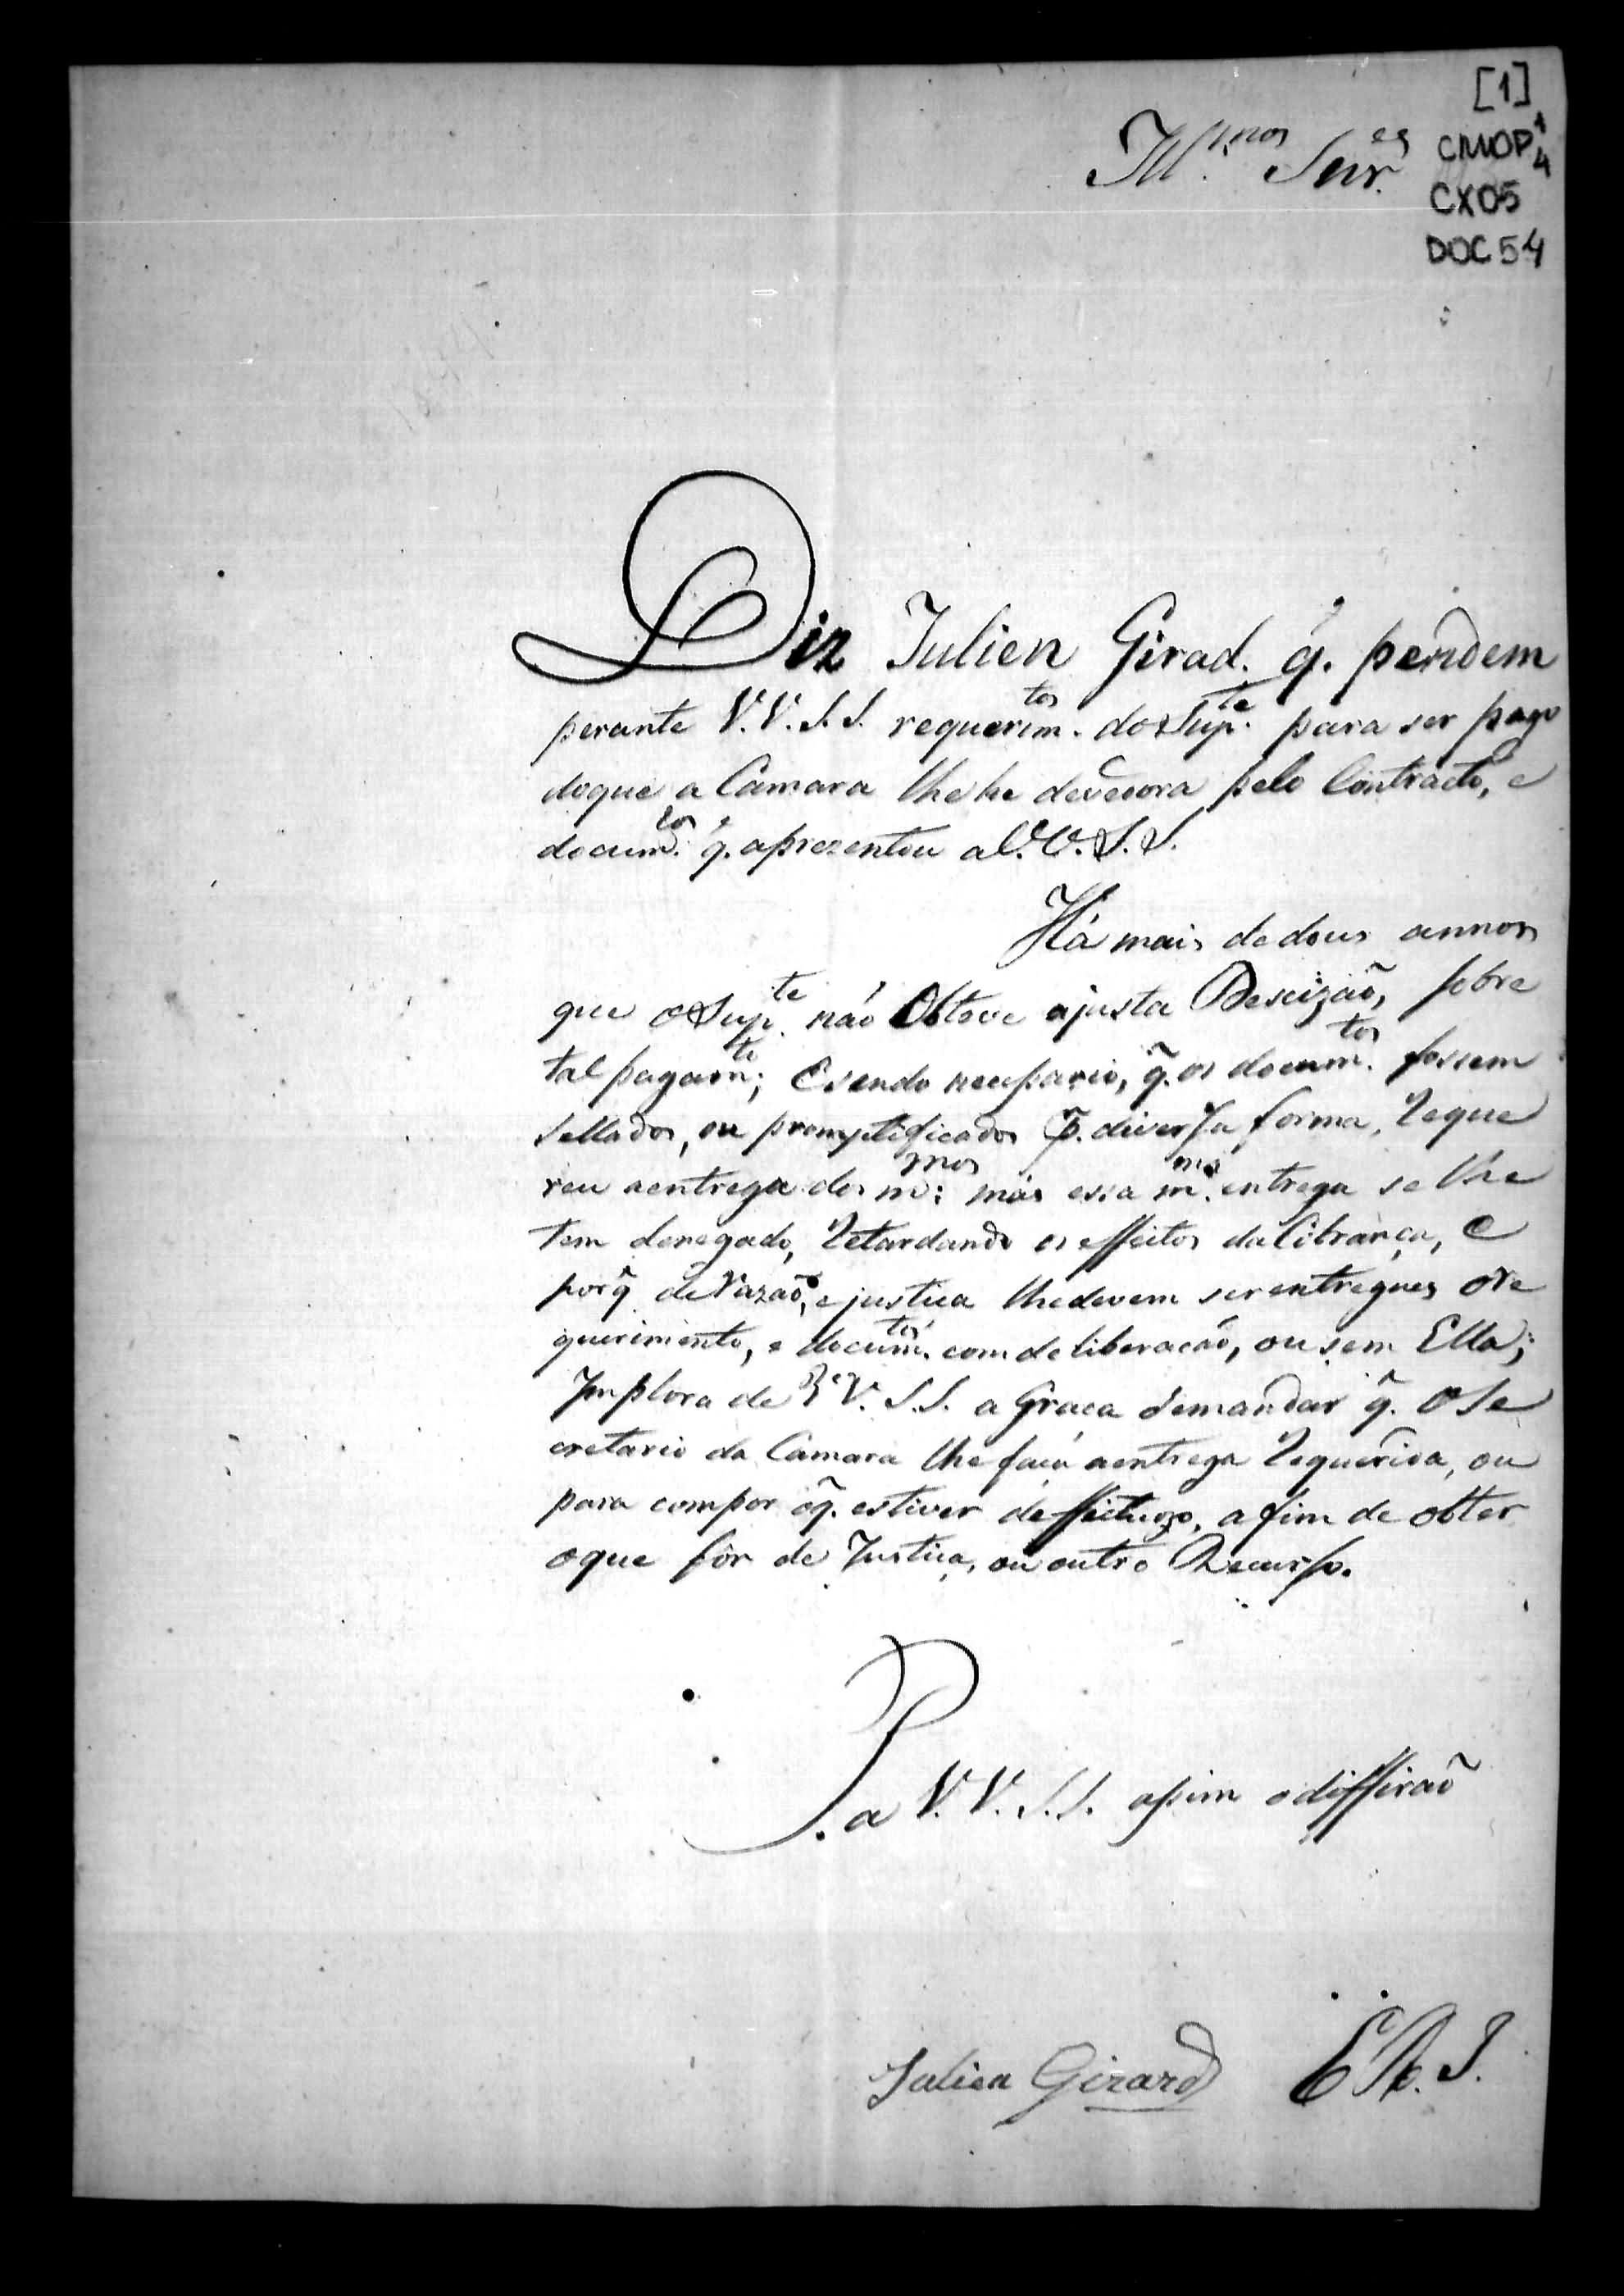 [1]
CMOP 1
4
CX05
DOC 54
Ill.mos Snr.es
Diz Julien Girad. q̃. pendem
perante V.V.S.S. requerim.tos do Sup.te para ser pago
doque a Camara lhe he devedora pelo Contracto, e
docum.tos q̃. aprezentou a V.V.S.S.
Há mais de dous annos
que o Sup.te não Obteve ajusta Descizaõ, sobre
tal pagam.to; Esendo necessario, q̃. os docum.tos fossem
sellados, ou promptificados P̃. diversa forma, Reque
reu aentrega dos m.mos; más essa m.ma entrega se lhe
tem denegado, Retardando os effeitos da Cobrança, e
porq̃ de Razaõ, e justica lhedevem serentregues oRe
querimento, e docum.tos com deliberacaõ, ou sem Ella;
Implora de V.S.S. a Graca demandar q̃. o Se
cretario da Camara lhe faça aentrega Requerida, ou
para compor õq. estiver deffeituozo, a fim de obter
oque fôr de Justiça, ou outro Recurso.
P. a V.V.S.S. assim o diffiraõ
Julien Girard E R. J.